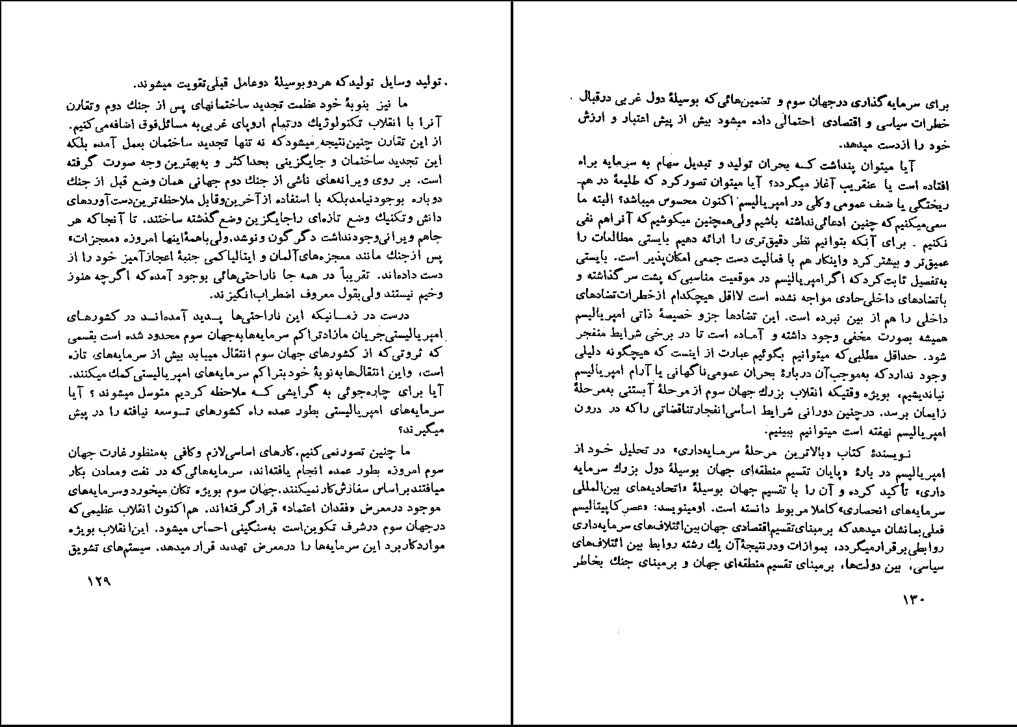 تولید وسایل تولیدکه هردوبوسیلهٔ دوعامل قبلی‌تقویت میشوند.
ما نیز بنوبهٔ خود عظمت تجدید ساختمانهای پس از جنك دوم وتقارن
آنرا با انقلاب تکنولوژیك درتمام اروپای غربی‌به مسائل‌فوق اضافه‌می‌کنیم.
از این تقارن چنین‌نتیجه‌میشودکه نه تنها تجدید ساختمان بعمل آمده بلکه
این تجدید ساختمان و جایگزینی بحداکثر و به‌بهترین وجه صورت گرفته
است. بر روی ویرانه‌های ناشی از جنك دوم جهانی همان وضع قبل از جنك
دوباره بوجودنیامدبلکه با استفاده ازآخرین‌وقابل ملاحظه‌ترین‌دست‌آوردهای
دانش وتکنیك وضع تازه‌ای راجایگزین وضع‌گذشته ساختند. تا آنجاکه هر
جاهم ویرانی‌وجودنداشت دگرگون ونوشد.ولی‌باهمهٔ‌اینها امروزه «معجزات»
پس ازجنك مانند معجزه‌های‌آلمان و ایتالیاکمی جنبهٔ اعجازآمیز خود را از
دست داده‌اند. تقریباً در همه جا ناراحتی‌هائی بوجود آمده‌که اگرچه هنوز
وخیم نیستند ولی‌بقول معروف اضطراب‌انگیزند.
درست در زمـانیکه این ناراحتی‌ها پـدید آمده‌انـد در کشورهای
امپریالیستی‌جریان مازادتراکم سرمایه‌هابه‌جهان سوم محدود شده است بقسمی
که ثروتی‌که از کشورهای جهان سوم انتقال مییابد بیش از سرمایه‌های تازه
است، واین انتقال‌هابه‌نوبهٔ خودبتراکم سرمایه‌های امپریالیستی‌کمك میکنند.
آیا برای چاره‌جوئی به گرایشی کـه ملاحظه کردیم متوسل میشوند ؟ آیا
سرمایه‌های امپریالیستی بطور عمده راه کشورهای تـوسعه نیافته را در پیش
میگیرند؟
ما چنین تصورنمی‌کنیم.کارهای اساسی‌لازم وکافی به‌منظور غارت جهان
سوم امروزه بطور عمده انجام یافته‌اند، سرمایه‌هائی‌که در نفت ومعادن بکار
میافتندبراساس سفارش‌کارنمیکنند.جهان سوم بویژه تکان میخوردوسرمایه‌های
موجود درمعرض «فقدان اعتماد» قرارگرفته‌اند. هم‌اکنون انقلاب عظیمی‌که
درجهان سوم درشرف تکوین‌است به‌سنگینی احساس میشود. این‌انقلاب بویژه
مواردکاربرد این سرمایه‌ها را درمعرض تهدید قرارمیدهد. سیستم‌های تشویق
۱۲۹
برای سرمایه‌گذاری درجهان سوم و تضمین‌هائی‌که بوسیلهٔ دول غربی درقبال
خطرات سیاسی و اقتصادی احتمالی داده میشود بیش از پیش اعتبار و ارزش
خود را ازدست میدهد.
آیا میتوان پنداشت کـه بحران تولید و تبدیل سهام به سرمایه براه
افتاده است یا عنقریب آغاز میگردد؟ آیا میتوان تصورکرد که طلیعهٔ در هم‌ـ
ریختگی یا ضعف عمومی وکلی درامپریالیسم اکنون محسوس میباشد؟ البته ما
سعی‌میکنیم‌که چنین ادعائی‌نداشته باشیم ولی‌همچنین میکوشیم‌که آنراهم نفی
نکنیم . برای آنکه بتوانیم نظر دقیق‌تری را ارائه دهیم بایستی مطالعات را
عمیق‌تر و بیشترکرد واینکار هم با فعالیت دست جمعی امکان‌پذیر است. بایستی
به‌تفصیل ثابت‌کردکه اگرامپریالیسم در موقعیت مناسبی‌که پشت سرگذاشته و
باتضادهای داخلی‌حادی مواجه نشده است لااقل هیچکدام ازخطرات‌تضادهای
داخلی را هم از بین نبرده است. این تضادها جزو خصیصهٔ ذاتی امپریالیسم
همیشه بصورت مخفی وجود داشته و آمـاده است تا در برخی شرایط منفجر
شود. حداقل مطلبی‌که میتوانیم بگوئیم عبارت از اینست که هیچگونه دلیلی
وجود نداردکه به‌موجب‌آن دربارهٔ بحران عمومی‌ناگهانی یا آرام امپریالیسم
نیاندیشیم، بویژه وقتیکه انقلاب بزرك جهان سوم از مرحلهٔ آبستنی به‌مرحلهٔ
زایمان برسد. درچنین دورانی شرایط اساسی‌انفجارتناقضاتی راکه در درون
امپریالیسم نهفته است میتوانیم ببینیم.
نویسندهٔ کتاب «بالاترین مرحلهٔ سرمایه‌داری» در تحلیل خود از
امپریالیسم در بارهٔ «پایان تقسیم منطقه‌ای جهان بوسیلهٔ دول بزرك سرمایه
داری» تأکید کرده و آن را با تقسیم جهان بوسیلهٔ «اتحادیه‌های بین‌المللی
سرمایه‌های انحصاری» کاملا مربوط دانسته است. اومینویسد: «عصرکاپیتالیسم
فعلی‌بمانشان میدهدکه برمبنای‌تقسیم‌اقتصادی جهان‌بین‌ائتلاف‌های سرمایه‌داری
روابطی‌برقرارمیگردد، بموازات ودرنتیجهٔ‌آن یك رشته روابط بین ائتلاف‌های
سیاسی، بین دولت‌ها، برمبنای تقسیم منطقه‌ای جهان و برمبنای جنك بخاطر
۱۳۰